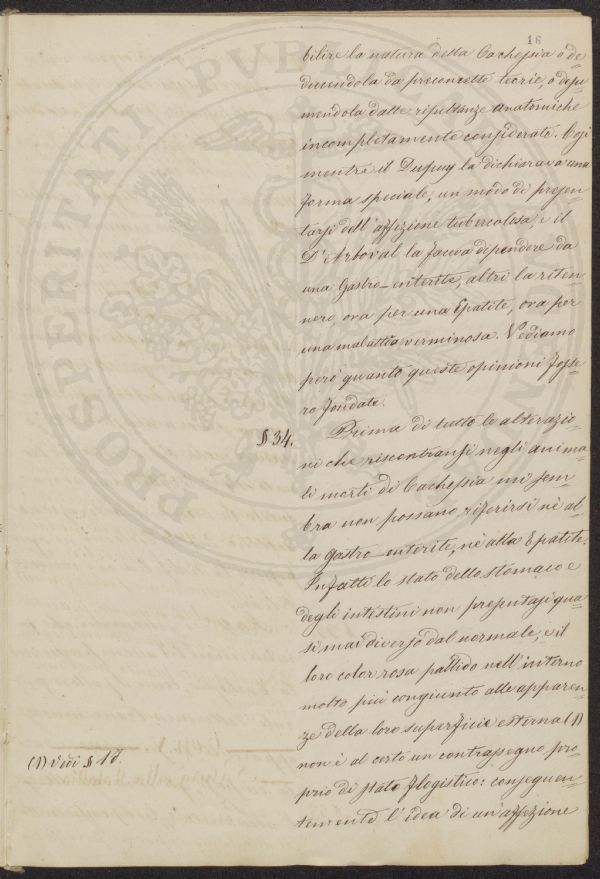 16
bilire la natura della Cachessia o de=
ducendola da preconcette teorie, o desu=
mendola dalle risultanze anatomiche
incompletamente considerate. Così
mentre il Dupuy la dichiarava una
forma speciale, un modo di presen=
tarsi dell'affezione tubercolosa, e il
D'Arboval la faceva dipendere da
una Gastro-enterite, altri la riten=
nero, ora per una Epatite, ora per
una malattia verminosa. Vediamo
però quanto queste opinioni fosse=
ro fondate.
§ 34. Prima di tutto le alterazio=
ni che riscontransi negli anima=
li morti di Cachessia mi sem=
bra non possano riferirsi nè al=
la Gastro-enterite, nè alla Epatite.
Infatti lo stato dello stomaco e
degli intestini non presentasi qua=
si mai diverso dal normale, e il
loro color rosa pallido nell'interno
molto più congiunto alle apparen=
ze della loro superficie esterna (1)
non è al certo un contrassegno pro=
prio di stato flogistico: conseguen=
temente l'idea di un'affezione
(1) Vedi § 18.
PROSPERITATI PUBL